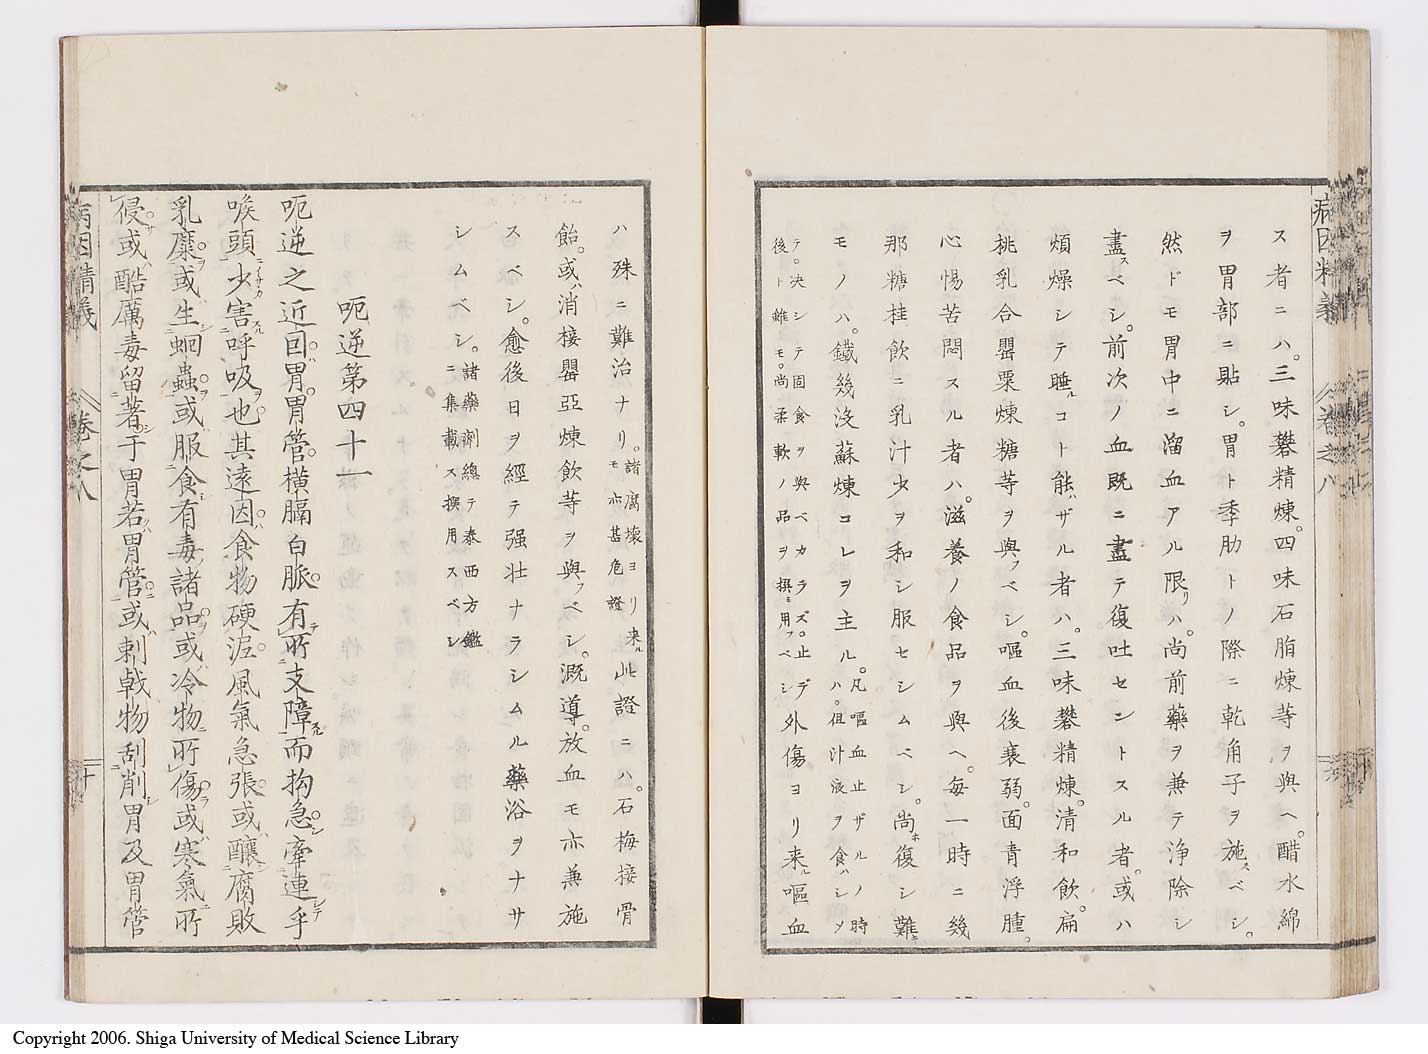 病因精義 卷之八
ス者ニハ。三味礬精煉。四味石脂煉等ヲ與ヘ。醋水綿
ヲ胃部ニ貼シ。胃ト季肋トノ際ニ乾角子ヲ施スベシ。
然ドモ胃中ニ溜血アル限リハ。尚前藥ヲ兼テ浄除シ
盡スベシ。前次ノ血既ニ盡テ復吐セントスル者。或ハ
煩燥シテ睡ルコト能ハザル者ハ。三味礬精煉。清和飲。扁
桃乳合罌粟煉糖等ヲ與フベシ。嘔血後衰弱。面青浮腫。
心惕苦悶スル者ハ。滋養ノ食品ヲ與ヘ。毎一時ニ幾
那糖桂飲ニ乳汁少ヲ和シ服セシムベシ。尚ホ復シ難キ
モノハ。鐵幾沒蘇煉コレヲ主ル。凡嘔血止ザルノ時ハ。伹汁液ヲ食ハシヲ
テ。決シテ固食ヲ與ベカラズ。止デ後ト雖モ。尚柔軟ノ品ヲ撰ミ用フベシ外傷ヨリ来ル嘔血
ハ殊ニ難治ナリ。諸腐壞ヨリ来ルモ亦甚危證此證ニハ。石梅接骨
飴。或ハ消椄罌亞煉飲等ヲ與フベシ。溉導。放血モ亦兼施
スベシ。愈後日ヲ經テ强壮ナラシムル藥浴ヲナサ
シムベシ。諸藥劑總テ泰西方鑑ニ集載ス撰用スベシ
呃逆第四十一
呃逆之近因。胃。胃管。橫膈。白脈。有所支障而拘急。牽連乎
喉頭。少害呼吸也。其遠因。食物硬泥。風氣急張。或釀腐敗
乳糜。或生蛔蟲。或服食有毒諸品。或冷物所傷。或寒氣所
侵。或酷厲毒留著于胃若胃管。或刺戟物刮削胃及胃管
病因精義 卷之八 十
Copyright 2006. Shiga University of Medical Science Library